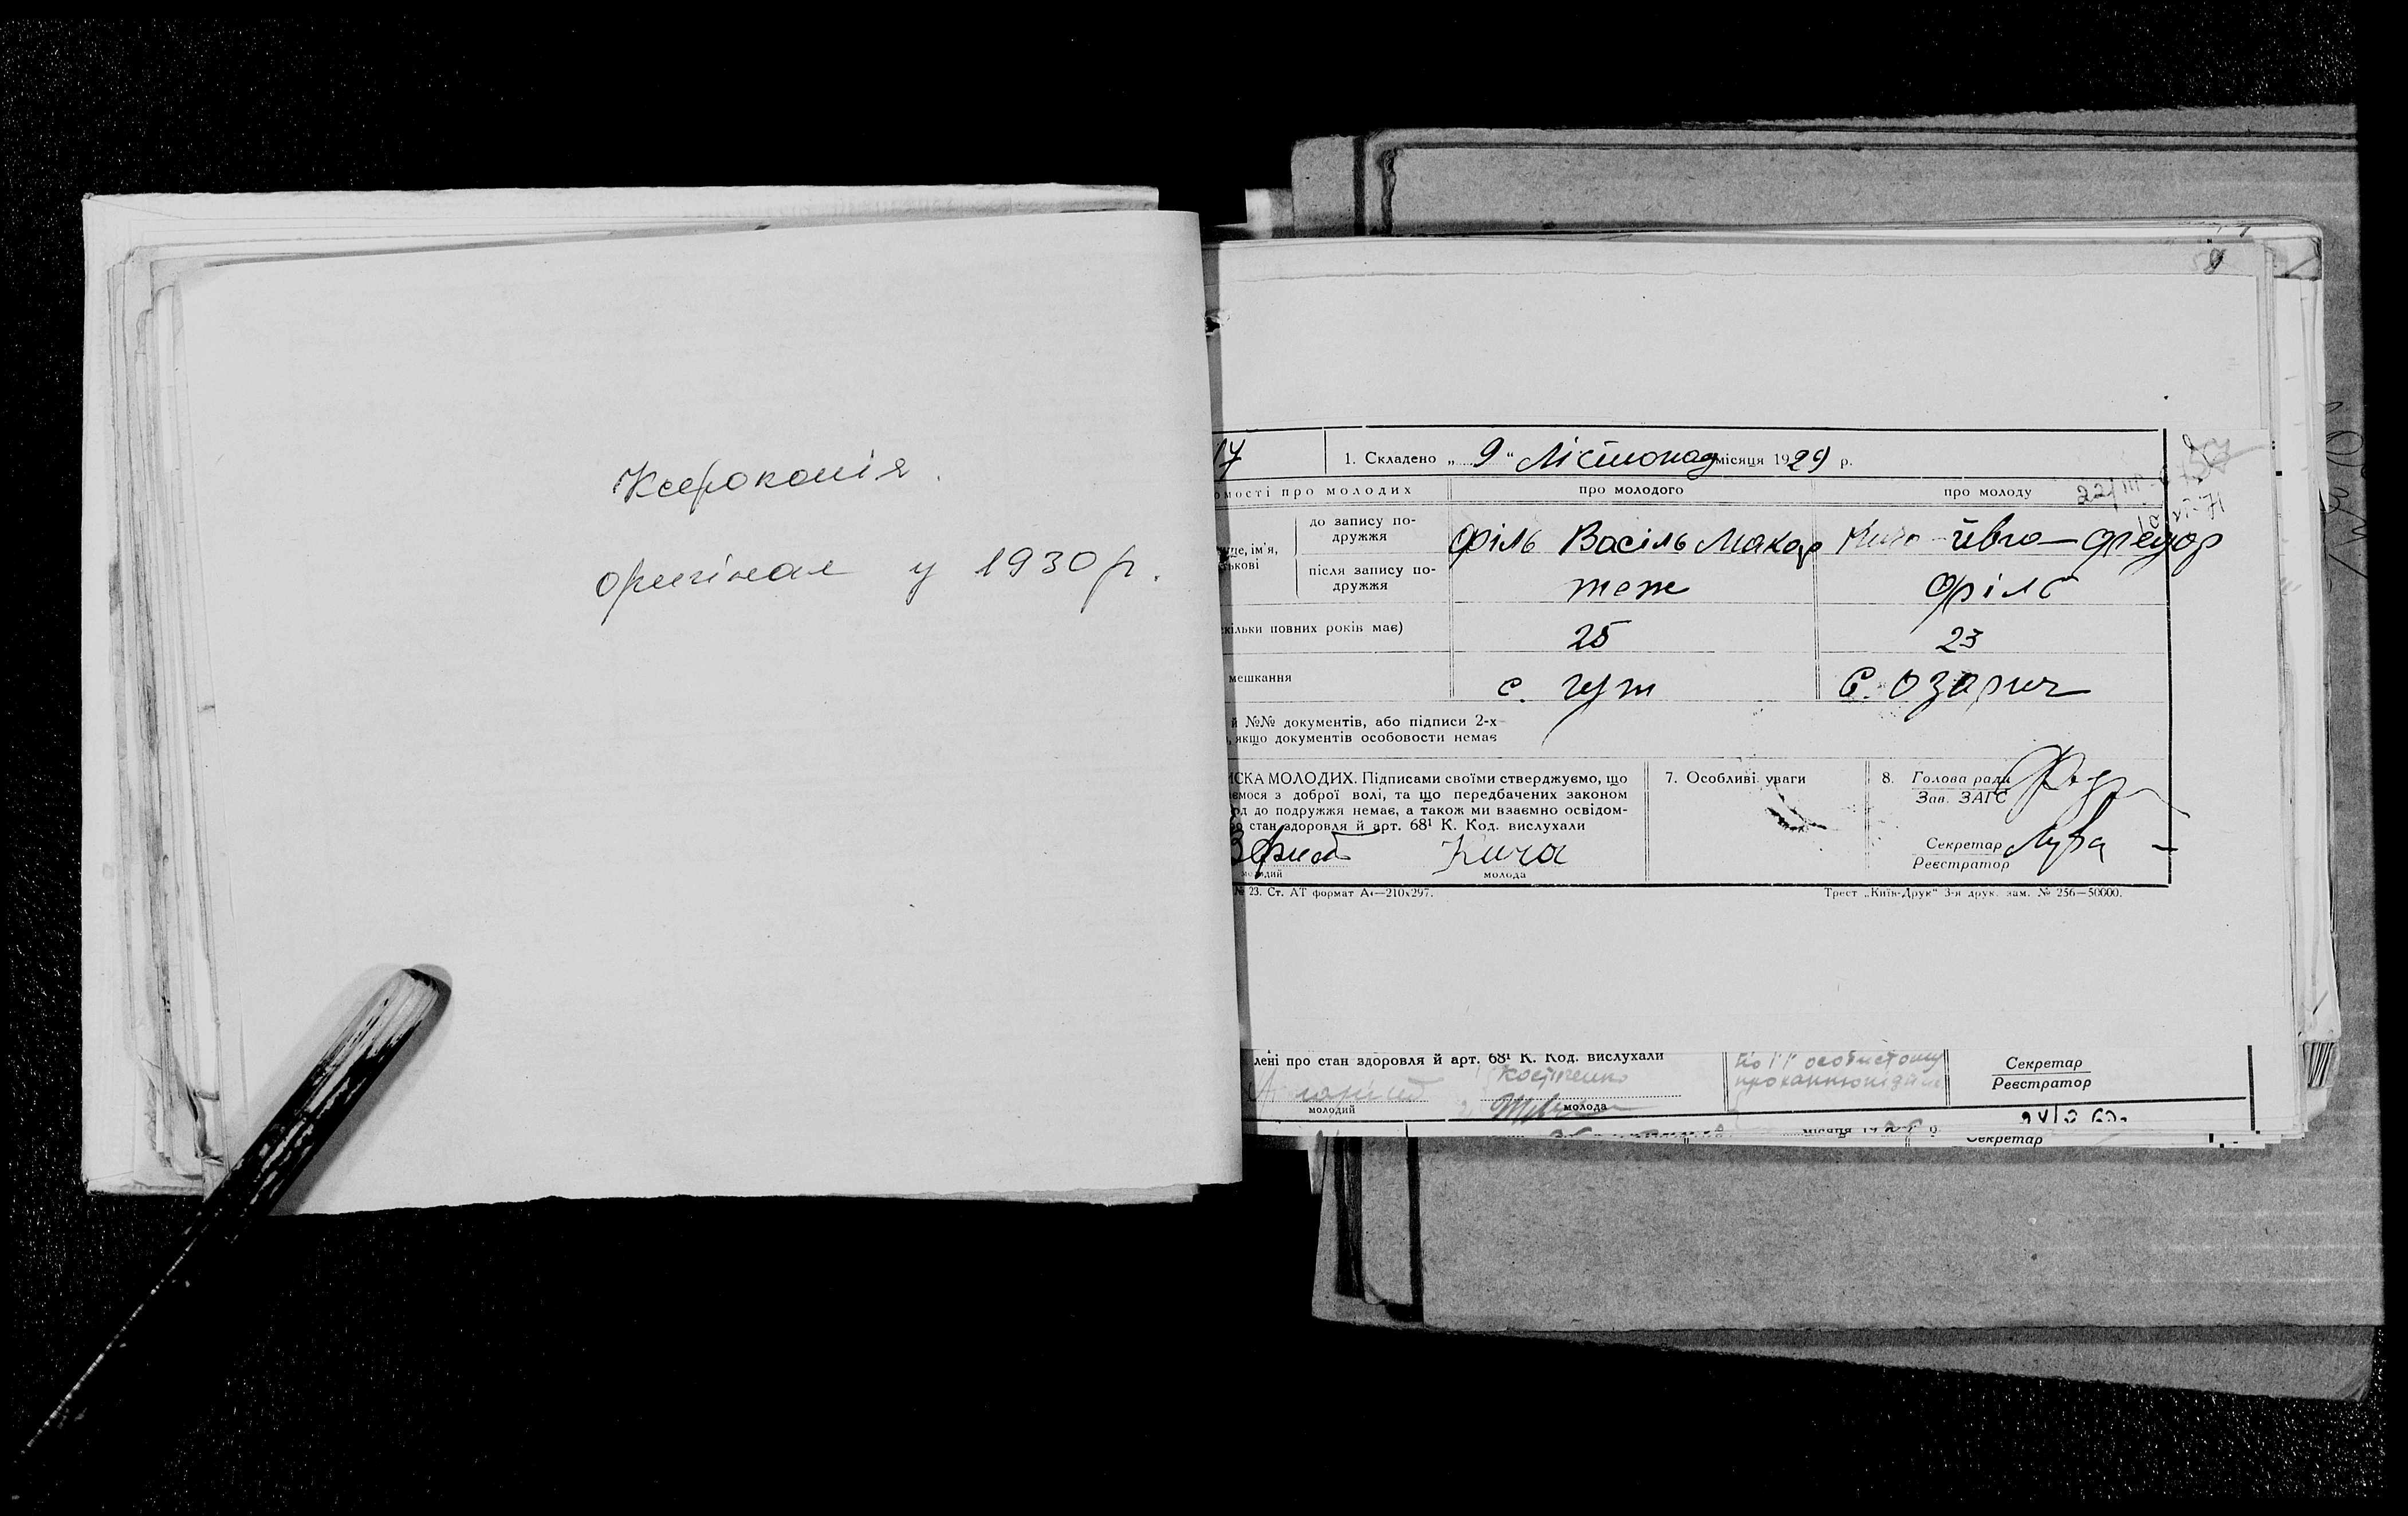 Ксерокопія.
оригінал у 1930 р.
17
1. Складено „ 9 “ Лістопад місяця 1929 р.
омості про молодих
про молодого
про молоду
до запису по-
дружжя
Філь Васіль Макар
Федор
ім'я,
після запису по-
дружжя
теж
Філь
кільки повних років має)
25
23
мешкання
с. Гут
С. Озарич
й №№ документів, або підписи 2-х
, якщо документів особовости немає
ИСКА МОЛОДИХ. Підписами своїми стверджуємо, що
ємося з доброї волі, та що передбачених законом
од до подружжя немає, а також ми взаємно освідом-
стан здоровля й арт. 68¹ К. Код. вислухали
Кича
молодий
молода
7. Особливі уваги
8. Голова ради
Зав. ЗАГС
Секретар
Реєстратор
№ 23. Ст. АТ формат А4—210х297.
Трест „Київ-Друк“ 3-я друк. зам. № 256—50000.
лені про стан здоровля й арт. 68¹ К. Код. вислухали
молодий
молода
Секретар
Реєстратор
місяця 19
Секретар